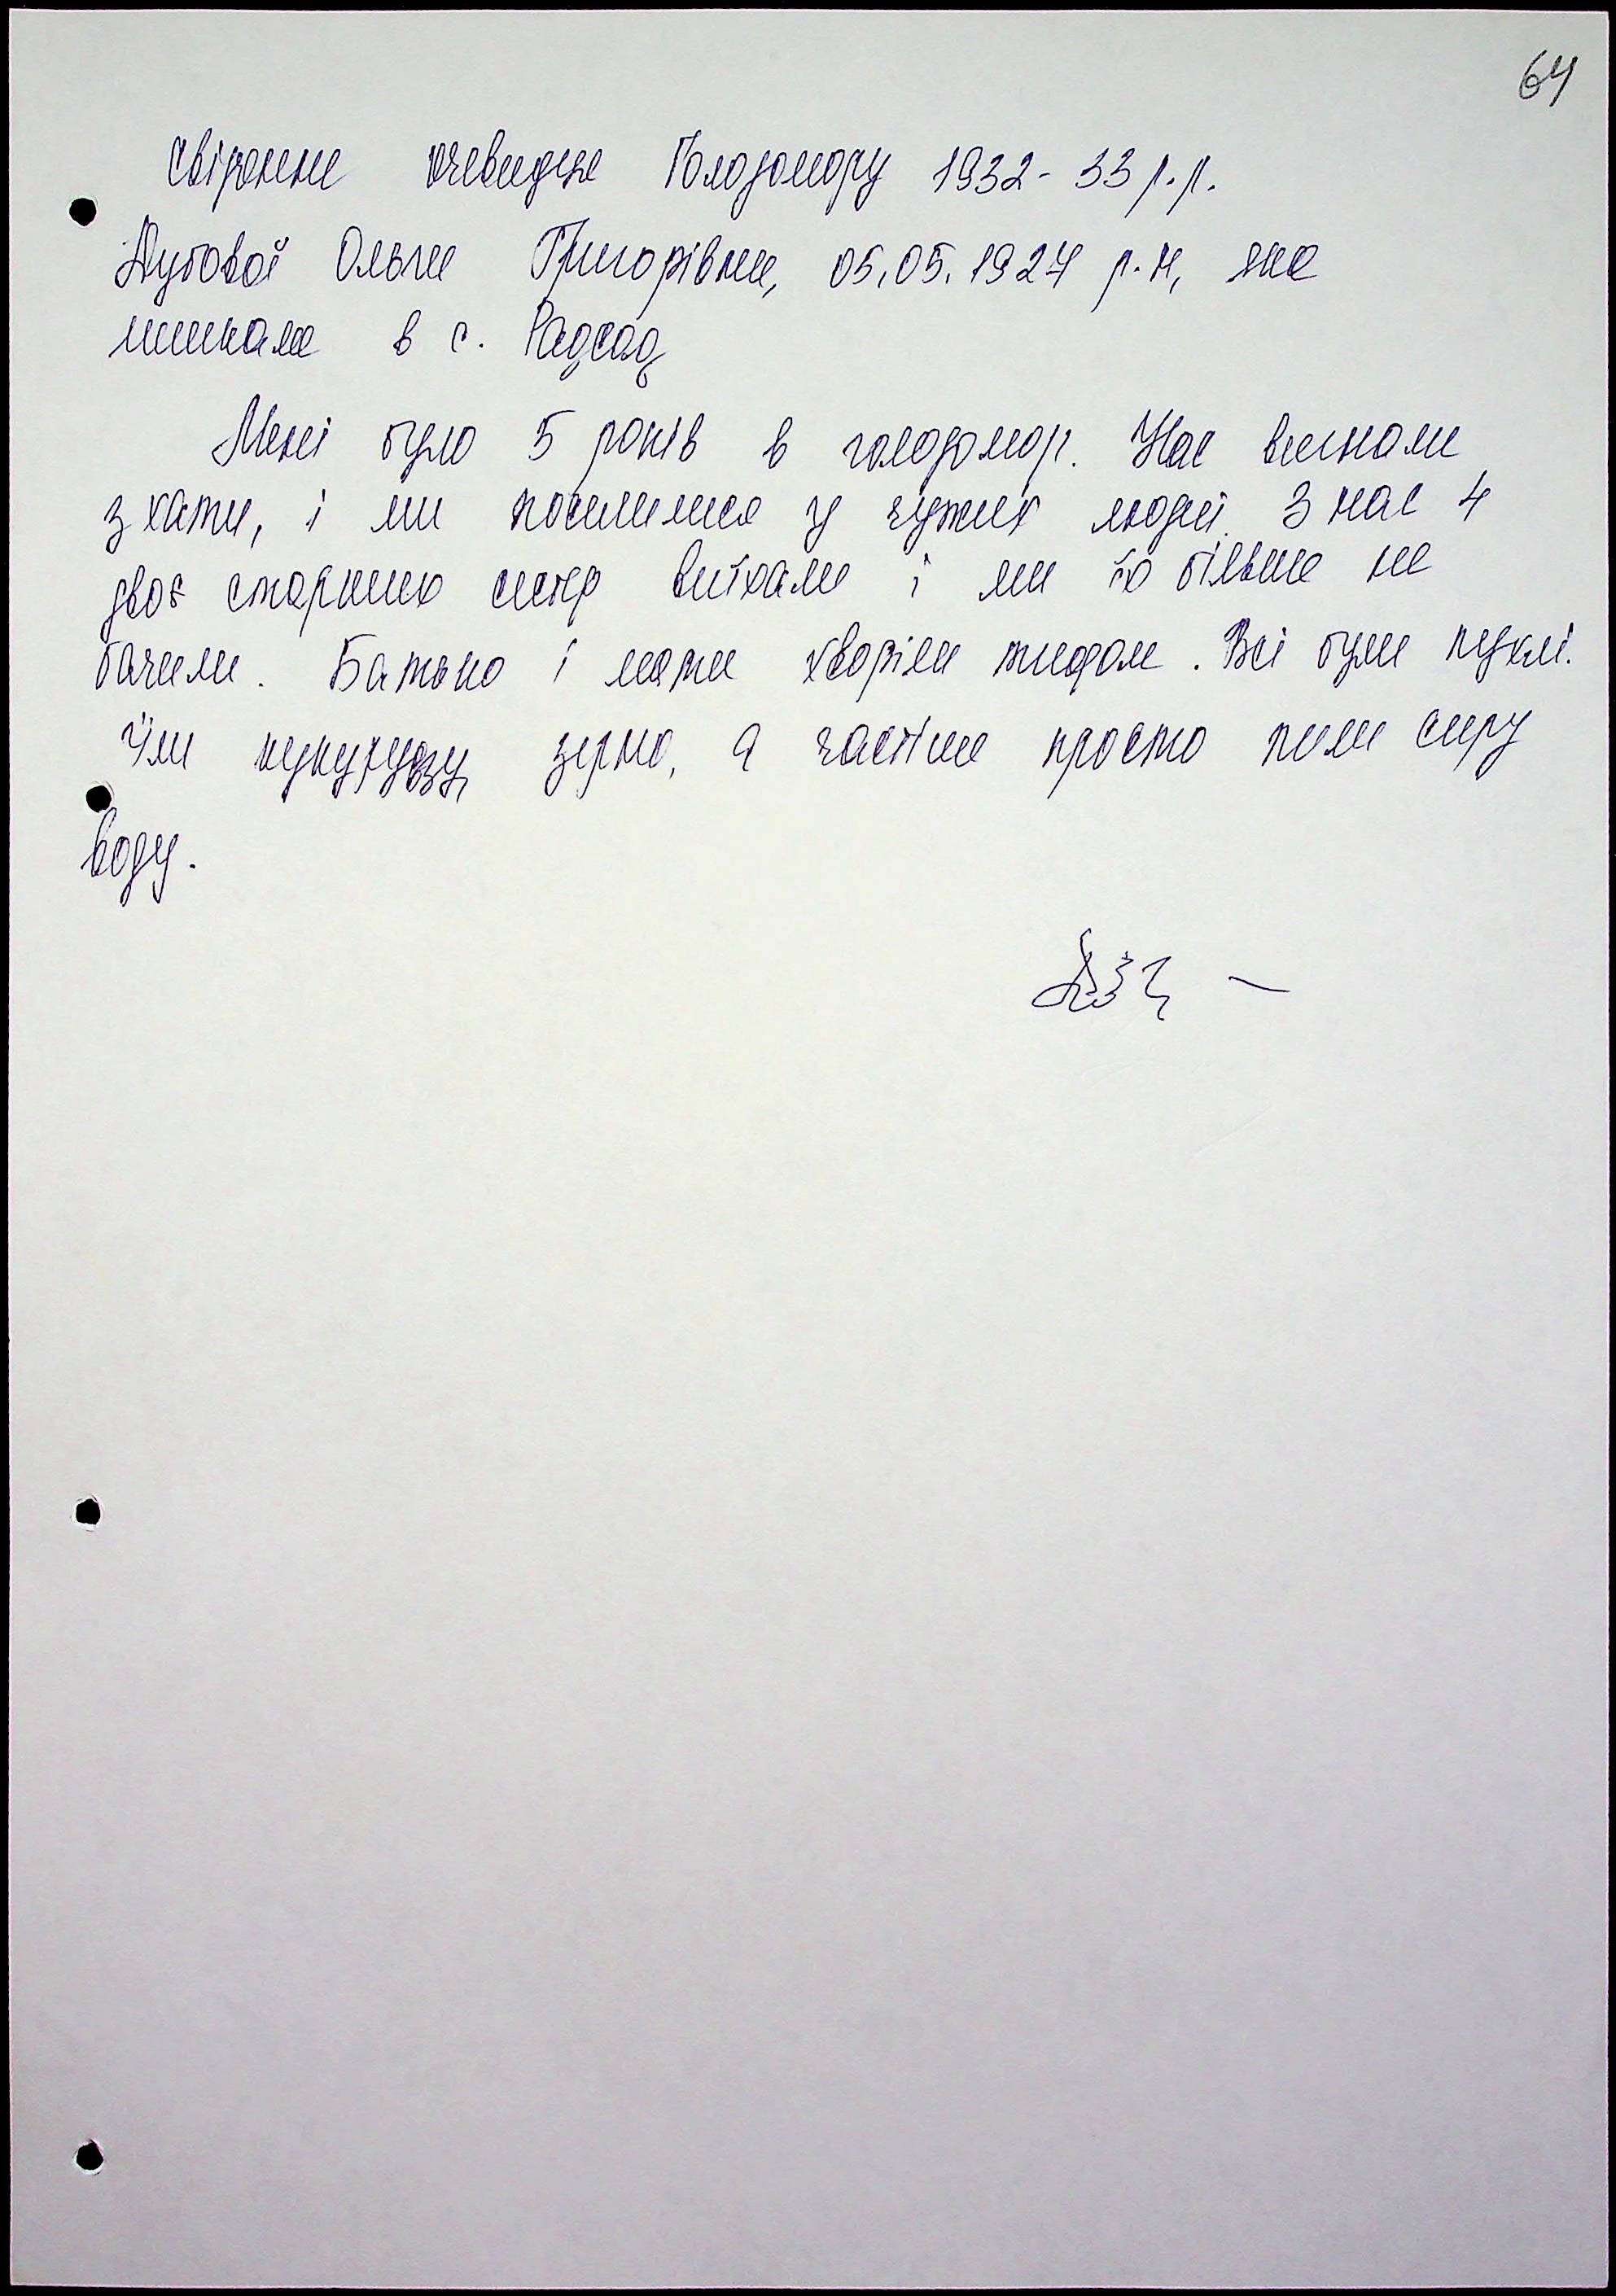 64
Свідчення очевидця Голодомору 1932-33 р.р.
Дубової Ольги Григорівни, 05.05.1927 р.н, яка
мешкала в с. Радсад
Мені було 5 років в голодомор. Нас вигнали
з хати, і ми поселилися у чужих людей. З нас 4
двоє старших сестр виїхали і ми їх більше не
бачили. Батько і мати хворіли тифом. Всі були пухлі.
Їли кукурудзу, зерно, а частіше просто пили сиру
воду.